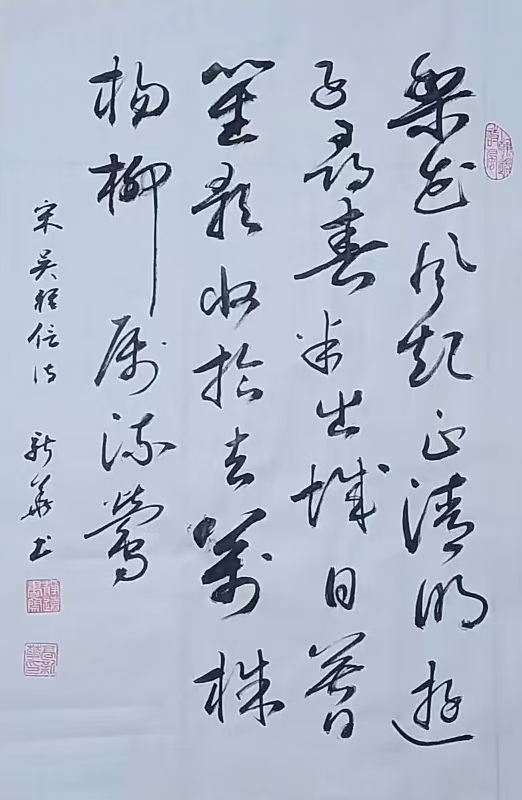 梨花风起正清明遊
子寻春半出城日暮
笙歌收拾去萬株
杨柳属流鶯
宋吴惟信诗 新華书